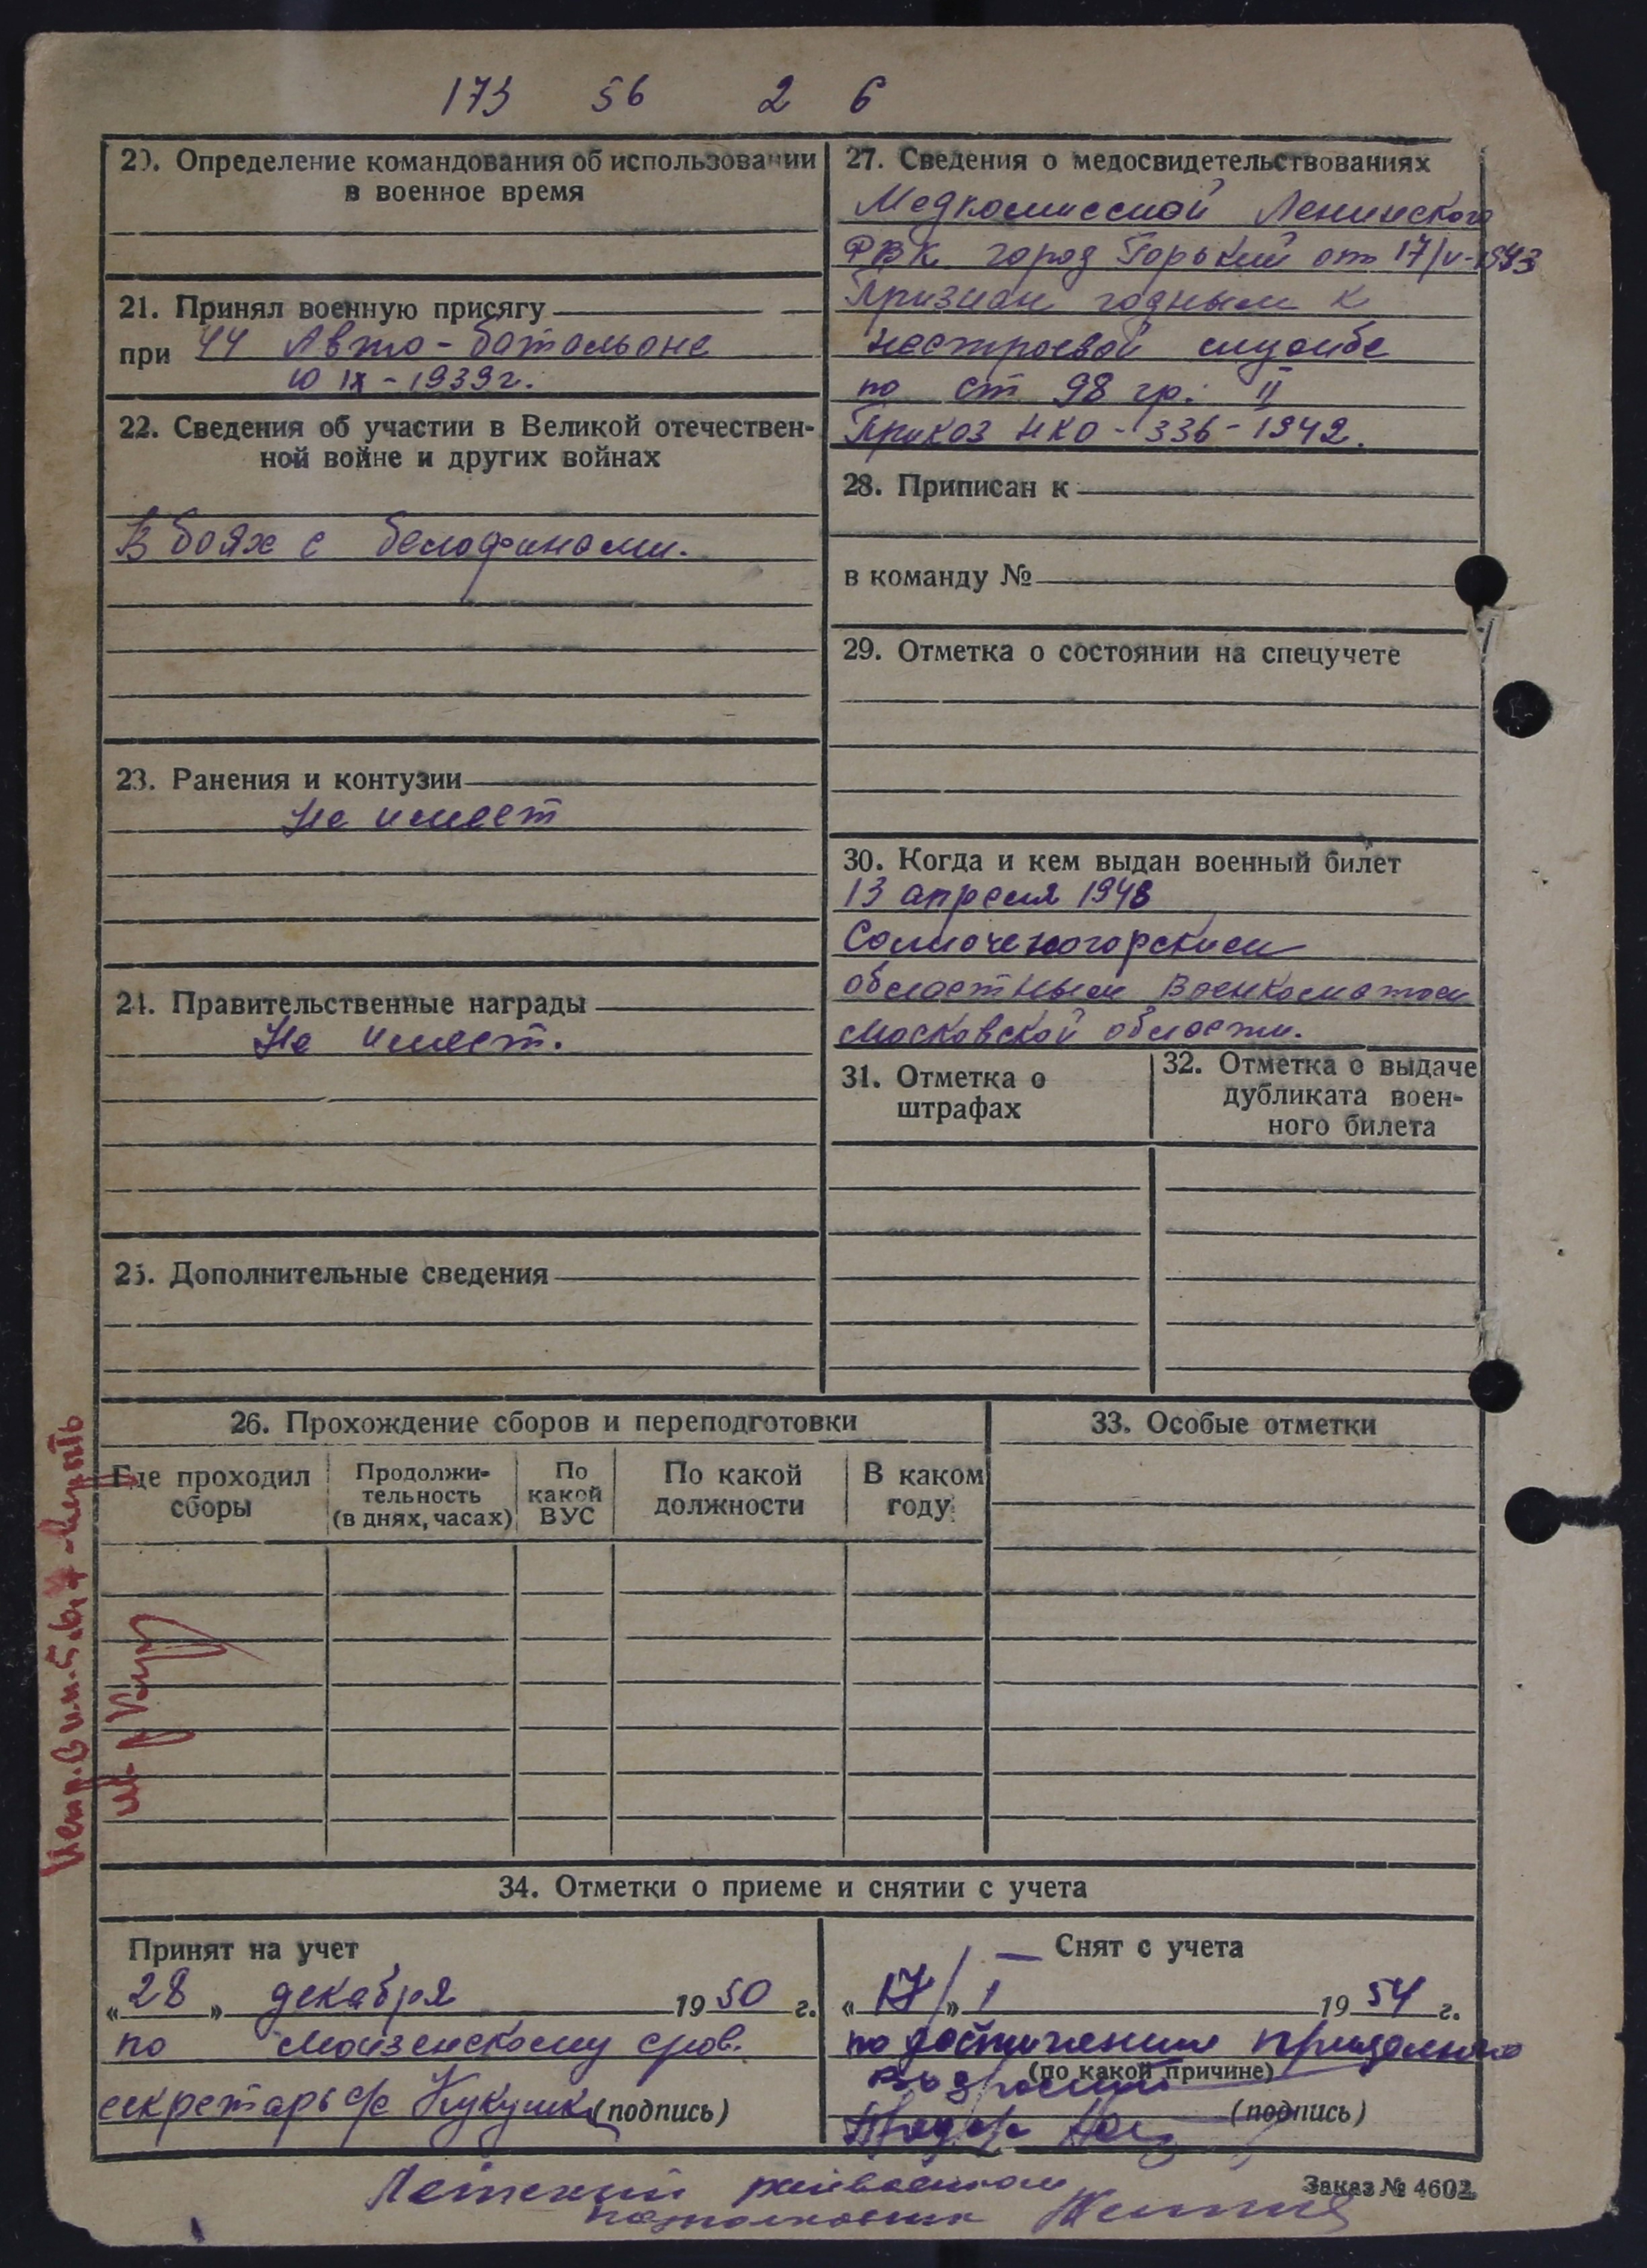 173 56 2 6
20. Определение командования об использовании
в военное время
21. Принял военную присягу
при 44 Авто-батальоне
10 IX - 1939 г.
22. Сведения об участии в Великой отечествен-
ной войне и других войнах
В боях с белофинами.
23. Ранения и контузии
Не имеет
24. Правительственные награды
Не имеет.
25. Дополнительные сведения
27. Сведения о медосвидетельствованиях
Медкомиссией Ленинского
РВК город Горький от 17/V-1943
Признан годным к
нестроевой службе
по ст 98 гр. II
Приказ НКО - 336 - 1942.
28. Приписан к
в команду №
29. Отметка о состоянии на спецучете
30. Когда и кем выдан военный билет
13 апреля 1948
Солнечногорским
областным Военкоматом
Московской области.
31. Отметка о
штрафах
32. Отметка о выдаче
дубликата воен-
ного билета
26. Прохождение сборов и переподготовки
Где проходил
сборы
Продолжи-
тельность
(в днях, часах)
По
какой
ВУС
По какой
должности
В каком
году
33. Особые отметки
34. Отметки о приеме и снятии с учета
Принят на учет
„28" декабря 1950 г.
по
секретарь с/с (подпись)
Снят с учета
„17" 1 1954 г.
по достижении предельного
(по какой причине)
возраста
(подпись)
Заказ № 4602
верить